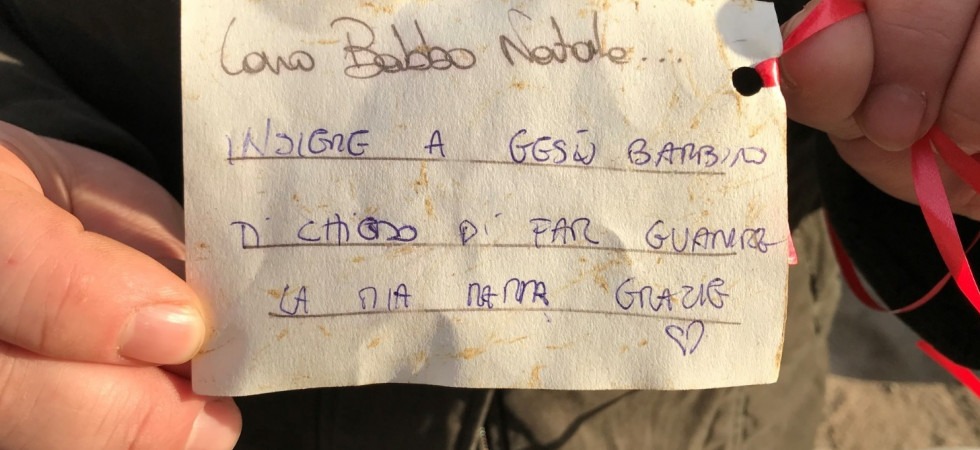 Caro Babbo Natale...
INSIEME A GESÙ BAMBINO
DI CHIEDO DI FAR GUARIRE
LA MIA MAMMA GRAZIE
♡